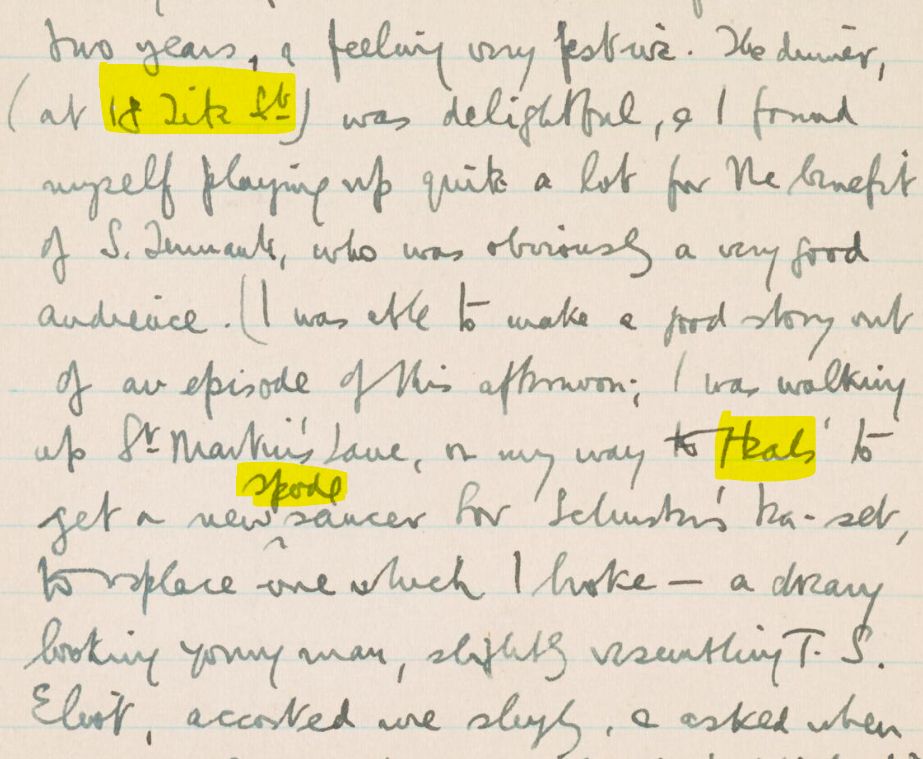 two years, & feeling very festive. The dinner,
(at 18 Tite St) was delightful, & I found
myself playing up quite a lot for the benefit
of S. Tennant, who was obviously a very good
audience. (I was able to make a good story out
of an episode of this afternoon; I was walking
up St Martin's Lane, on my way to Heals' to
spode
get a new saucer for Schuster's tea-set,
to replace one which I broke — a dreary
looking young man, slightly resembling T. S.
Eliot, accosted me slyly, & asked when